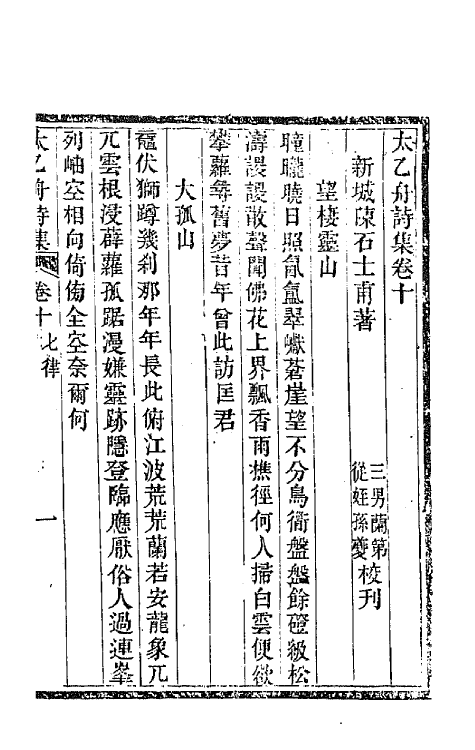 太乙舟詩集卷十
新城陳石士甫著
三男蘭第
從姪孫夔
校刊
望棲靈山
曈曨曉日照氤氳翠巘蒼崖望不分鳥衜盤盤餘磴級松
濤謖謖散聲聞佛花上界飄香雨樵徑何人掃白雲便欲
攀蘿尋舊夢昔年曾此訪匡君
大孤山
黿伏獅蹲幾刹那年年長此俯江波荒荒蘭若安龍象兀
兀雲根浸薜蘿孤踞漫嫌靈跡隱登臨應厭俗人過連峯
列岫空相向倚徧全空奈爾何
太乙舟詩集
卷十
七律
一